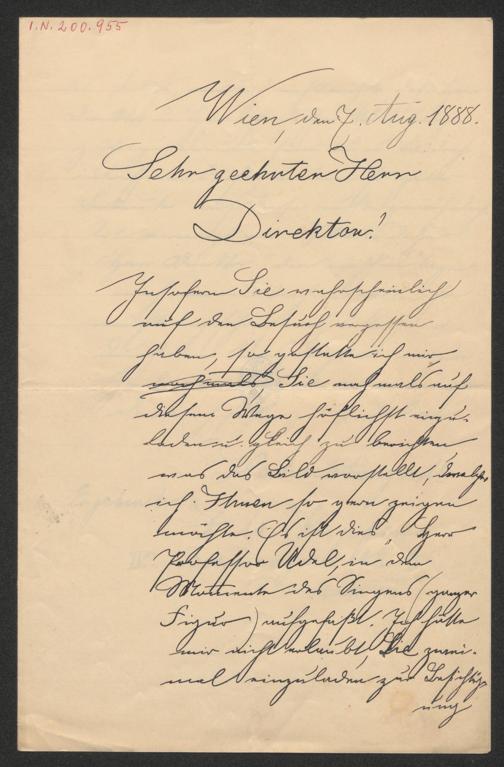 I.N. 200.955
Wien, den 7. Aug. 1888.
Sehr geehrter Herr
Direktor!
Insofern Sie wahrscheinlich
auf den Besuch vergessen
haben, so gestatte ich mir,
nochmals, Sie nochmals auf
diesem Wege höflichst einzu-
laden u. gleich zu berichten,
was das Bild vorstellt, welches
ich Ihnen so gern zeigen
möchte. Es ist dies „Herr
Professor Udel, in dem
Momente des Singens (ganzer
Figur) aufgefaßt. Ich hätte
mir nicht erlaubt, Sie zwei-
mal einzuladen zur Besichtig-
ung